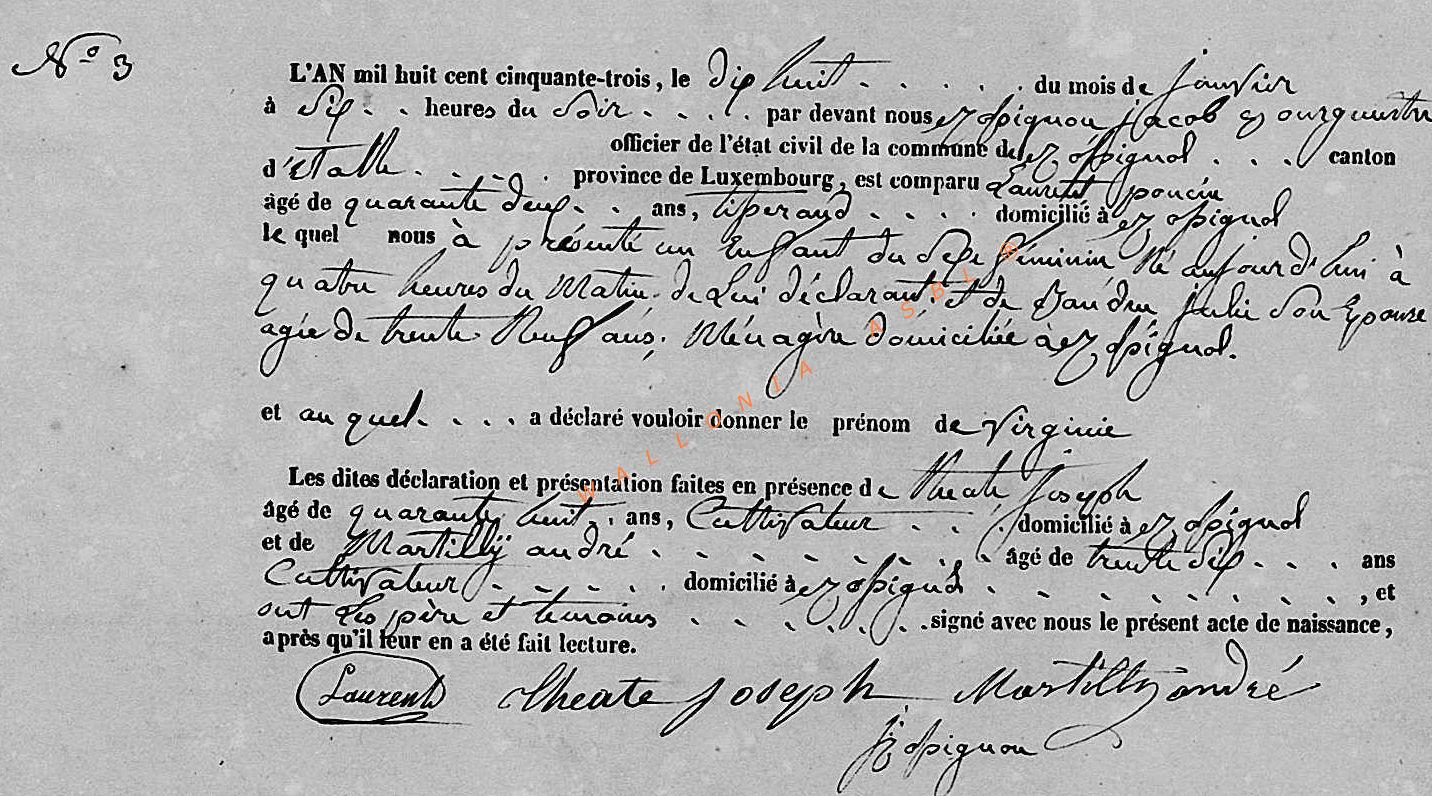 N° 3
L'AN mil huit cent cinquante-trois, le dix huit . . . . . . du mois de janvier
à six . . heures du soir . . . . par devant nous Rossignon jacob Bourguemestre
officier de l'état civil de la commune de Rossignol . . . canton
d'Etalle . . . . . province de Luxembourg, est comparu Laurent poncin
âgé de quarante deux . . ans, tisserand . . . . domicilié à Rossignol
le quel nous à présenté un Enfant du sexe féminin Né aujour d'hui à
quatre heures du Matin. de Lui déclarant. et de julie son Epouse
agée de trente Neuf ans, Ménagère domiciliée à Rossignol.
et au quel . . . . a déclaré vouloir donner le prénom de Virginie
Les dites déclaration et présentation faites en présence de theate joseph
âgé de quarante huit . . ans, Cultivateur . . . domicilié à Rossignol
et de Martilly andré . . . . . . . . . . âgé de trente six . . . . ans
Cultivateur . . . . . . domicilié à Rossignol . . . . . . . . , et
ont Les père et temoins . . . . . . . signé avec nous le présent acte de naissance,
après qu'il leur en a été fait lecture.
Laurent theate joseph Martilly andré
Rossignon
WALLONIA ASBL ®